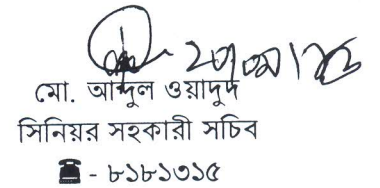 মো. আব্দুল ওয়াদুদ
সিনিয়র সহকারী সচিব
☎ - ৮১৮১৩১৫